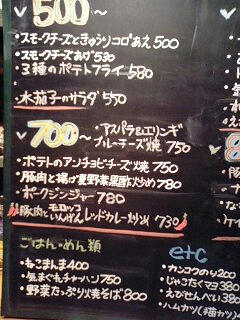 500〜
・スモークチーズときゅうりコロコロあえ 500
・スモークチーズあげ 530
・3種のポテトフライ 580
・水茄子のサラダ 550
700〜
・アスパラ&エリンギ
ブルーチーズ焼 750
・ポテトのアンチョビチーズ焼 750
・豚肉と揚げ夏野菜黒酢炒め 780
・ポークジンジャー 780
豚肉とモロッコいんげんレッドカレー炒め 730
ごはん・めん類
・ねこまんま 400
・気まぐれチャーハン 750
・野菜たっぷり焼そば 800
etc
・カンコウのり 200
・じゃこたくマヨ 380
・えびせんべい 380
・ハムカツ(猫カツ)